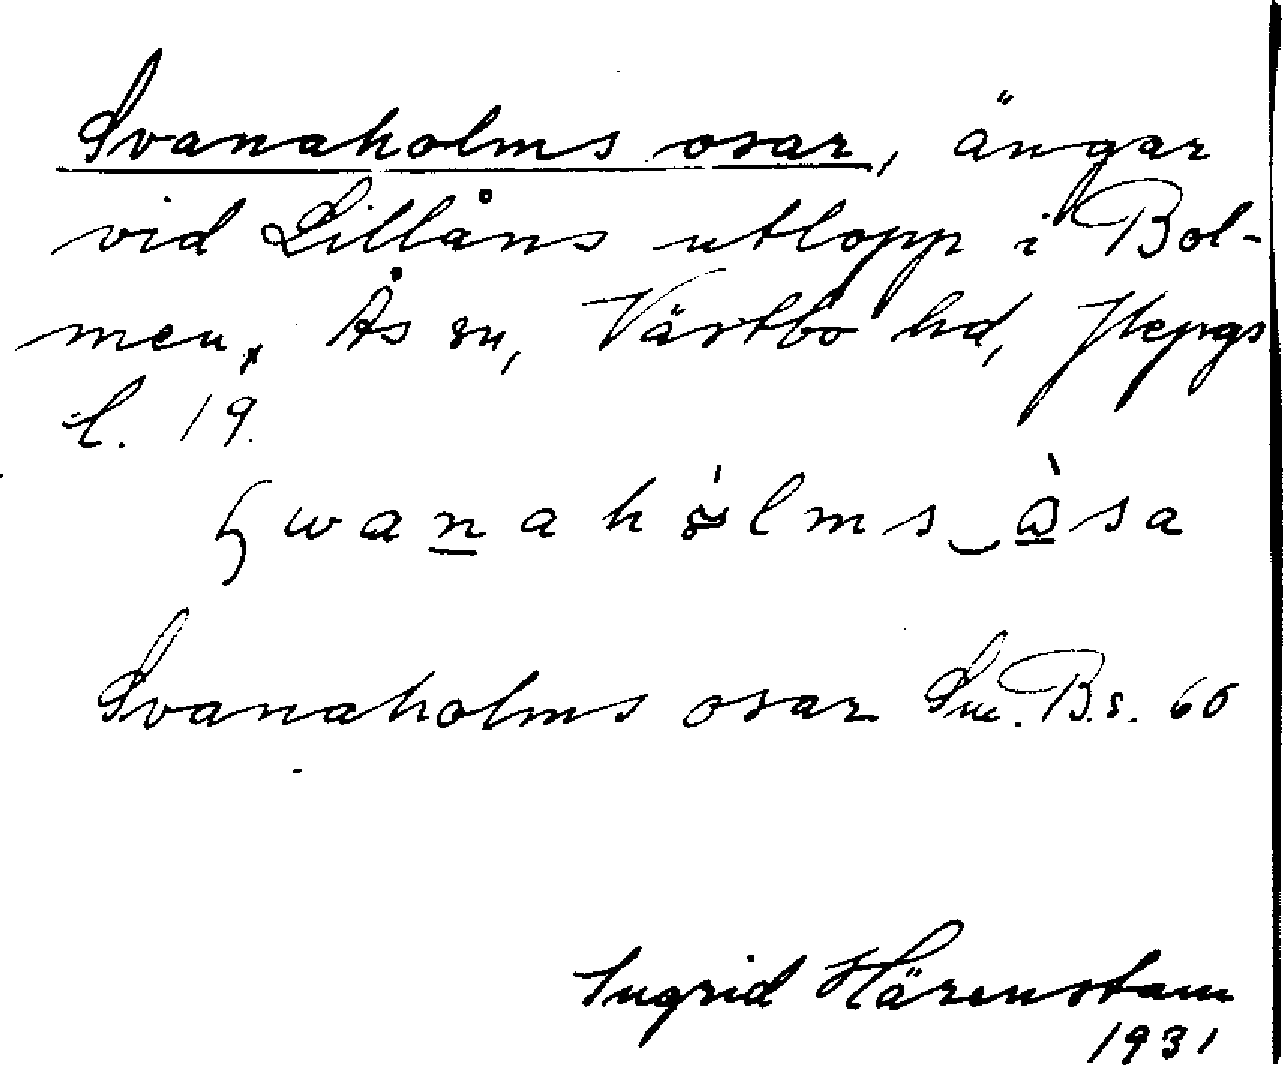 Svanaholms osar, ängar
vid Lillåns utlopp i Bol-
men, Ås sn, Västbo hd, Jkpgs
l. 19.
Svanaholms osar Sm. B. s. 60
Ingrid Härenstam
1931